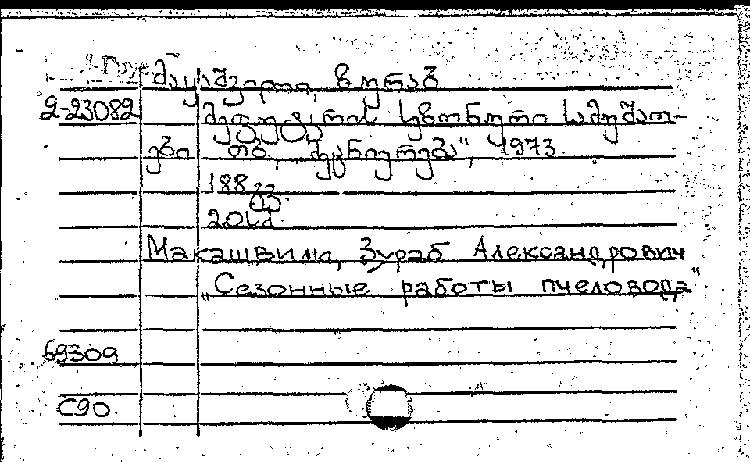 მაყაშვილი, ზურაბ
2-23082 მეფუტკრის სეზონური სამუშაო-
ები თბ., „მეცნიერება“, 1973
188 გვ
Макашвили, Зураб Александрович
„Сезонные работы пчеловода“
69309
С90